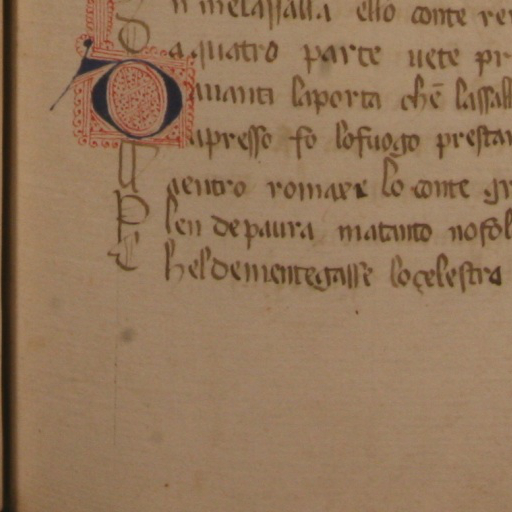 ello conte
D a quatro parte uete pr
D auanti laporta chē lassall
apresso fo lofuogo prestar
aentro romaxe lo conte gr
P len depaura matanto nofol
C hel demente gasse loçelestra